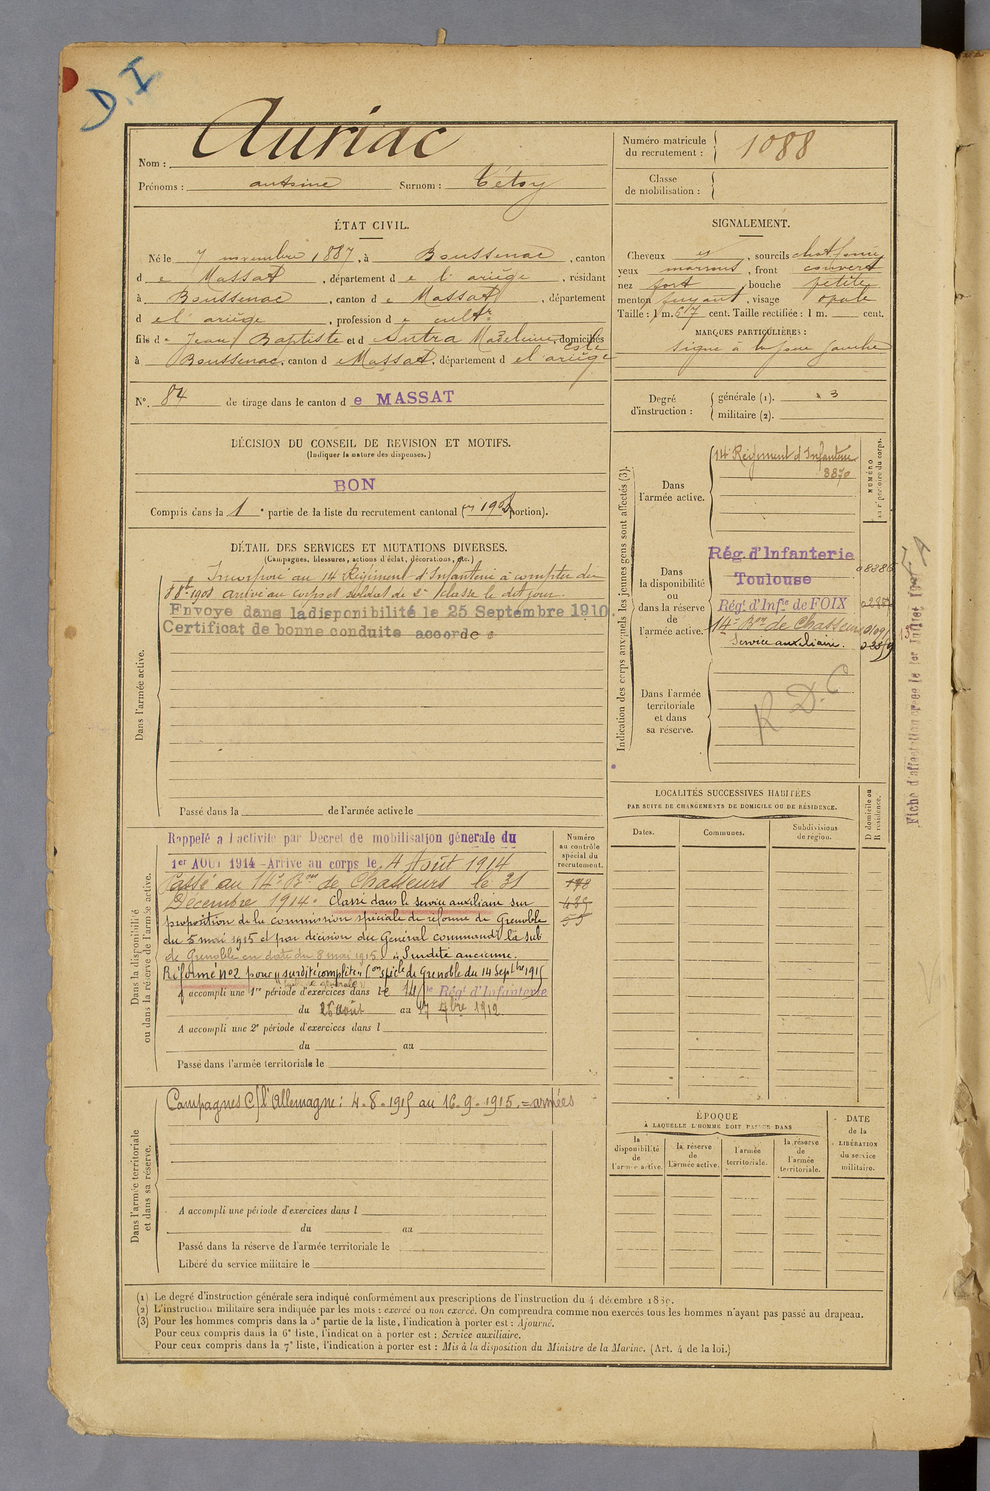 D. I
Nom : Auriac
Prénoms : antoine Surnom : Tétoy
Numéro matricule du recrutement : 1088
Classe de mobilisation :
ÉTAT CIVIL.
Né le 7 novembre 1887, à Boussenac, canton
d e Massat, département d e l'ariège, résidant
à Boussenac, canton d e Massat, département
d e l'ariège, profession d e cultr
fils d e Jean Baptiste et d Sutra Madeleine, domiciliés
à Boussenac, canton d e Massat, département d e l'ariège
SIGNALEMENT.
Cheveux et, sourcils chat foncé
yeux marrons, front couvert
nez fort, bouche petite
menton fuyant, visage ovale
Taille : 1 m. 67 cent. Taille rectifiée : 1 m. cent.
MARQUES PARTICULIÈRES :
signe à la joue gauche
N°. 84 de tirage dans le canton d e MASSAT
Degré d'instruction :
générale (1). 3
militaire (2).
DÉCISION DU CONSEIL DE REVISION ET MOTIFS.
(Indiquer la nature des dispenses.)
BON
Compris dans la 1 e partie de la liste du recrutement cantonal ( 1908 portion).
DÉTAIL DES SERVICES ET MUTATIONS DIVERSES.
(Campagnes, blessures, actions d'éclat, décorations, etc.)
Dans l'armée active.
Incorporé au 14 Régiment d'Infanterie à compter du
8 8bre 1908 arrivé au corps et soldat de 2e classe le dit jour.
Envoye dans la disponibilité le 25 Septembre 1910.
Certificat de bonne conduite accordé
Passé dans la de l'armée active le
Indication des corps auxquels les jeunes gens sont affectés (3).
NUMÉRO au répertoire du corps.
Dans l'armée active.
14 Régiment d'Infanterie
8870
Dans la disponibilité ou dans la réserve de l'armée active.
Rég. d'Infanterie
Toulouse
Régt d'Infie de FOIX
14e Bon de Chasseurs
Service auxiliaire.
Dans l'armée territoriale et dans sa réserve.
R. D. C
LOCALITÉS SUCCESSIVES HABITÉES
PAR SUITE DE CHANGEMENTS DE DOMICILE OU DE RÉSIDENCE.
Dates.
Communes.
Subdivisions de région.
D domicile ou R résidence.
Dans la disponibilité ou dans la réserve de l'armée active.
Numéro au contrôle spécial du recrutement.
Rappelé a l'activite par Decret de mobilisation générale du
1er AOUT 1914 - Arrive au corps le 4 Août 1914
Passé au 14e Bon de Chasseurs le 31
Décembre 1914. Classé dans le service auxiliaire sur
proposition de la commission spéciale de réforme de Grenoble
du 5 mai 1915 et par décision du Général commandt la sub
de Grenoble en date du 8 mai 1915. Surdité ancienne.
Réformé n°2 pour "surdité complète" Con spéc de Grenoble du 14 Septbre 1915
A accompli une 1re période d'exercices dans le 14e Régt d'Infanterie
du 26 août au 17 7bre 1912
A accompli une 2e période d'exercices dans l
du au
Passé dans l'armée territoriale le
Dans l'armée territoriale et dans sa réserve.
Campagnes C/ l'Allemagne : 4-8-1915 au 16-9-1915. = armées
A accompli une période d'exercices dans l
du au
Passé dans la réserve de l'armée territoriale le
Libéré du service militaire le
ÉPOQUE
À LAQUELLE L'HOMME DOIT PASSER DANS
la disponibilité de l'armée active.
la réserve de l'armée active.
l'armée territoriale.
la réserve de l'armée territoriale.
DATE de la LIBÉRATION du service militaire.
(1) Le degré d'instruction générale sera indiqué conformément aux prescriptions de l'instruction du 4 décembre 18
(2) L'instruction militaire sera indiquée par les mots : exercé ou non exercé. On comprendra comme non exercés tous les hommes n'ayant pas passé au drapeau.
(3) Pour les hommes compris dans la 5e partie de la liste, l'indication à porter est : Ajourné.
Pour ceux compris dans la 6e liste, l'indication à porter est : Service auxiliaire.
Pour ceux compris dans la 7e liste, l'indication à porter est : Mis à la disposition du Ministre de la Marine. (Art. 4 de la loi.)